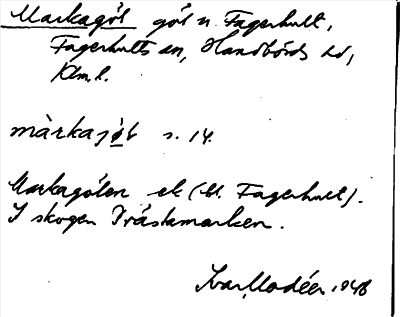 Markagöl göl n. Fagerhult,
Fagerhults sn, Handbörds hd,
Klm. l.
màrkajö̀l s. 14.
Markagölen ek (bl. Fagerhult).
I skogen Prästamarken.
Ivar Modéer 1946